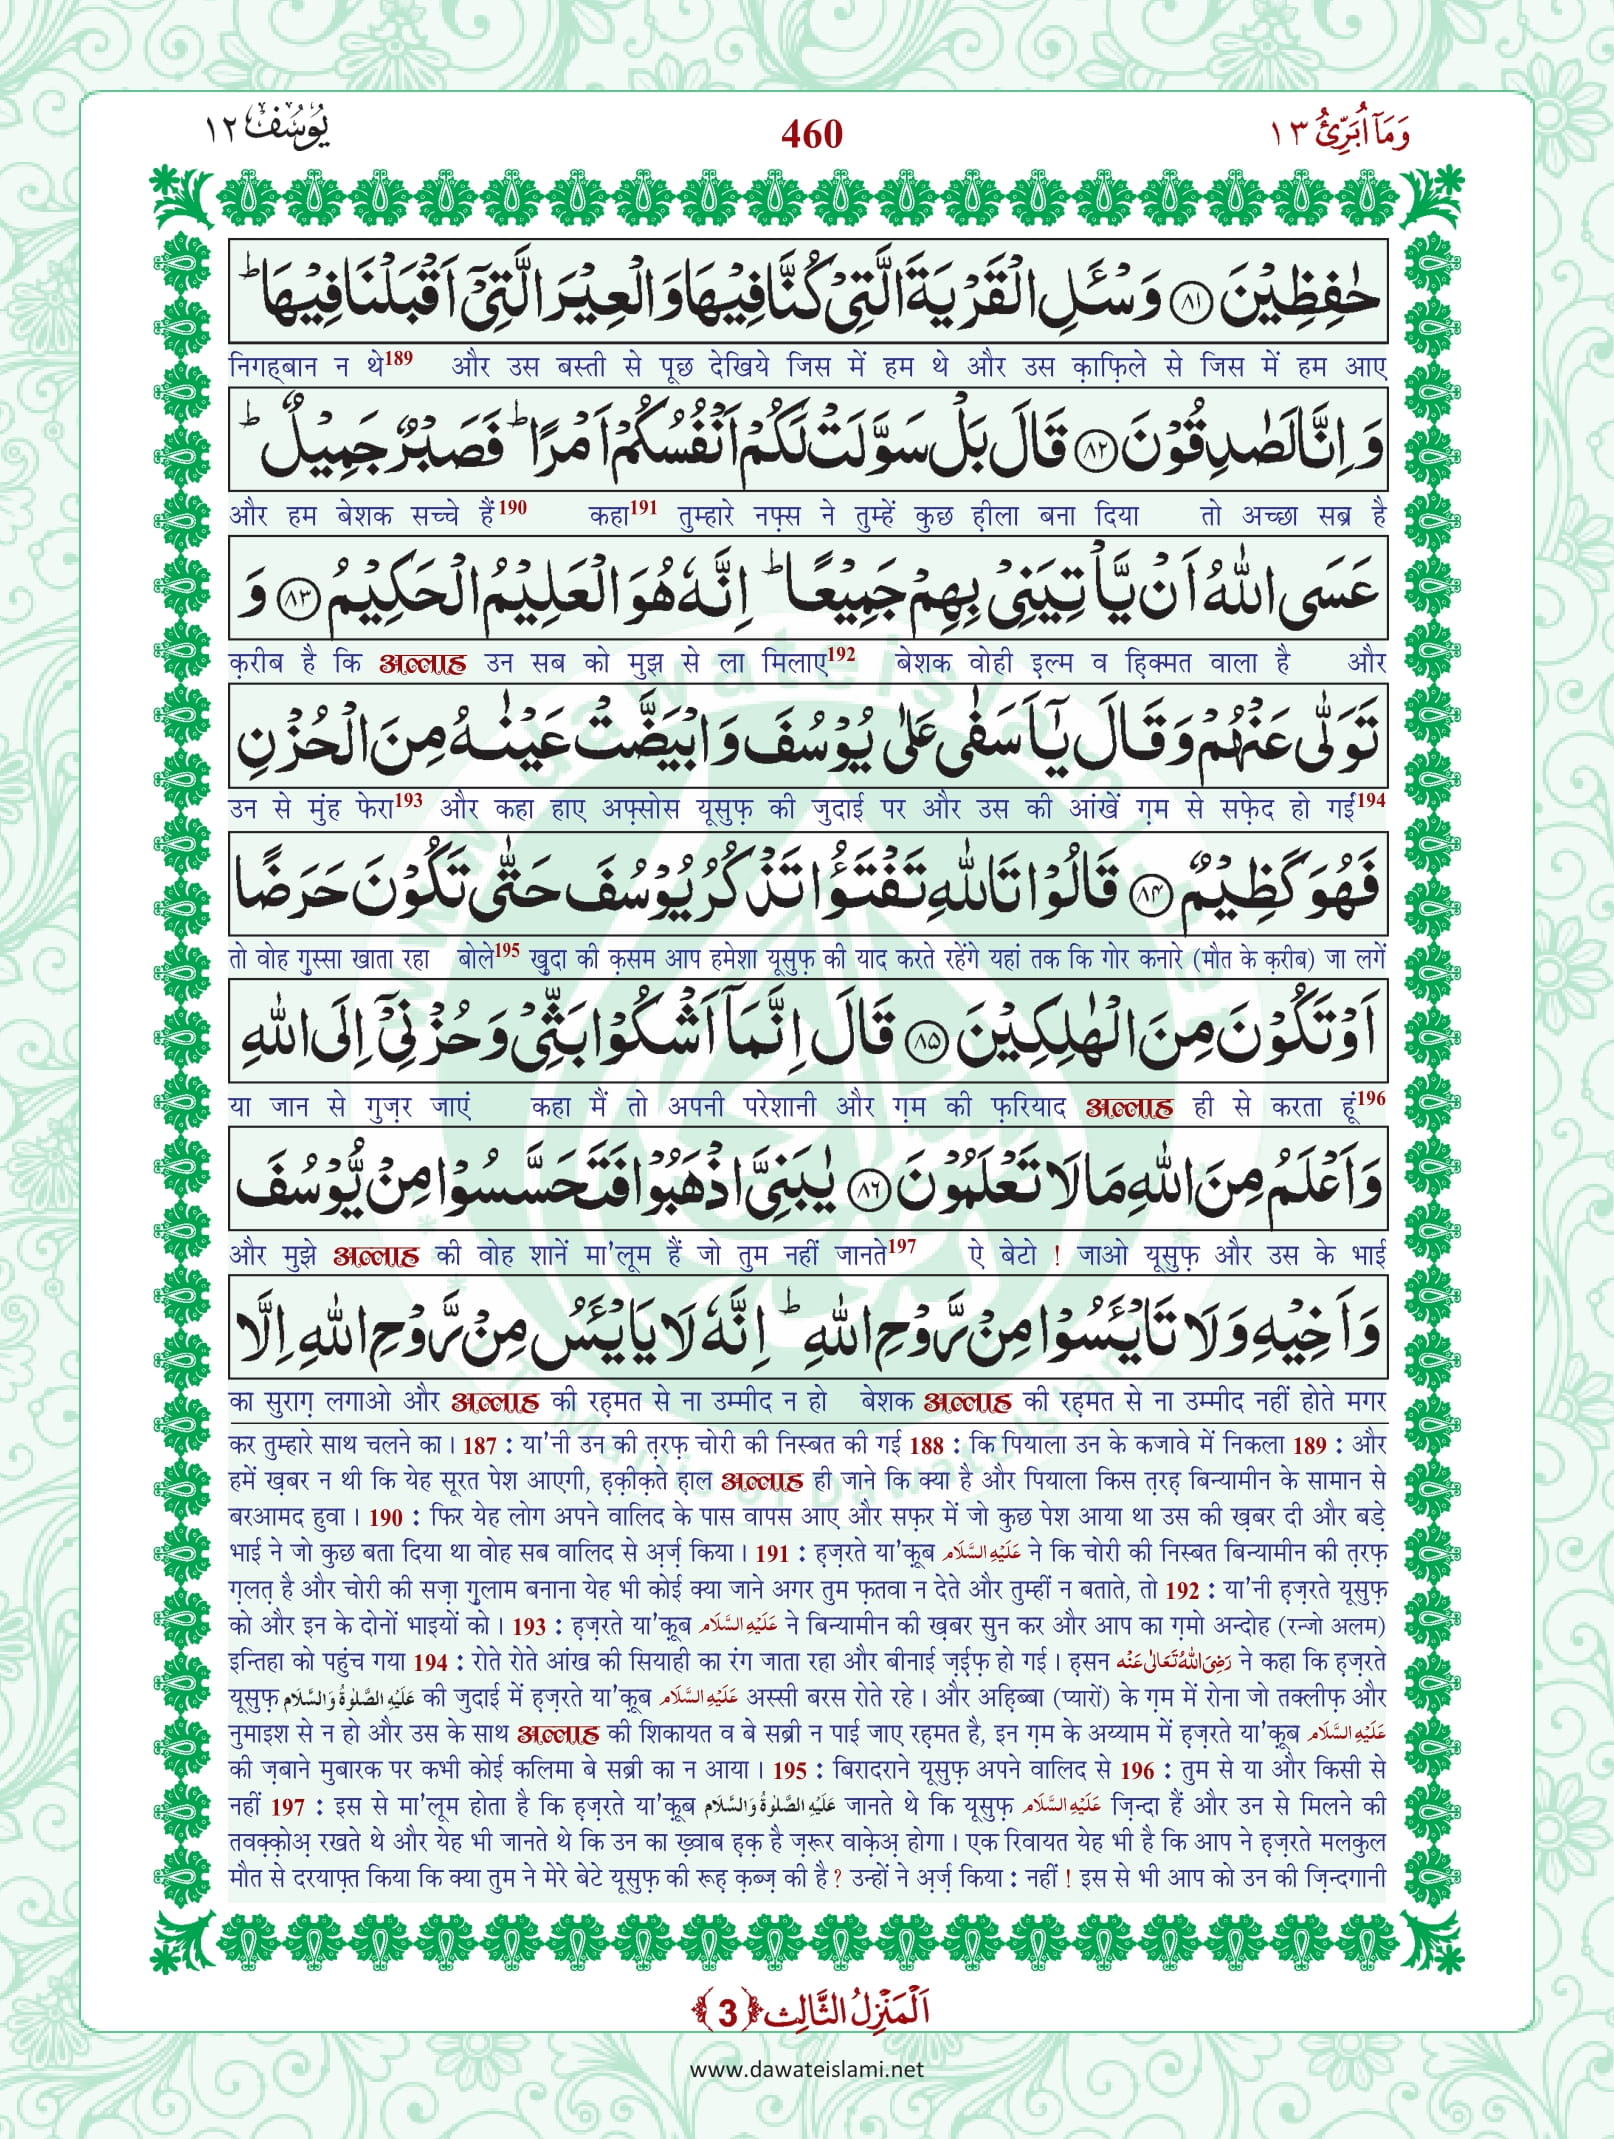 یُوْسُف ۱۲
460
وَمَاۤ اُبَرِّئُ ۱۳
حٰفِظِیْنَ ﴿۸۱﴾ وَسْـَٔلِ الْقَرْیَةَ الَّتِیْ كُنَّا فِیْهَا وَ الْعِیْرَ الَّتِیْۤ اَقْبَلْنَا فِیْهَا ؕ
निगह्बान न थे189 और उस बस्ती से पूछ देखिये जिस में हम थे और उस क़ाफ़िले से जिस में हम आए
وَ اِنَّا لَصٰدِقُوْنَ ﴿۸۲﴾ قَالَ بَلْ سَوَّلَتْ لَكُمْ اَنْفُسُكُمْ اَمْرًا ؕ فَصَبْرٌ جَمِیْلٌ ؕ
और हम बेशक सच्चे हैं190 कहा191 तुम्हारे नफ़्स ने तुम्हें कुछ ह़ीला बना दिया तो अच्छा सब्र है
عَسَى اللّٰهُ اَنْ یَّاْتِیَنِیْ بِهِمْ جَمِیْعًا ؕ اِنَّهٗ هُوَ الْعَلِیْمُ الْحَكِیْمُ ﴿۸۳﴾ وَ
क़रीब है कि अल्लाह उन सब को मुझ से ला मिलाए192 बेशक वोही इल्म व ह़िक्मत वाला है और
تَوَلّٰى عَنْهُمْ وَ قَالَ یٰۤاَسَفٰى عَلٰى یُوْسُفَ وَ ابْیَضَّتْ عَیْنٰهُ مِنَ الْحُزْنِ
उन से मुंह फेरा193 और कहा हाए अफ़्सोस यूसुफ़ की जुदाई पर और उस की आंखें ग़म से सफ़ेद हो गईं194
فَهُوَ كَظِیْمٌ ﴿۸۴﴾ قَالُوْا تَاللّٰهِ تَفْتَؤُا تَذْكُرُ یُوْسُفَ حَتّٰى تَكُوْنَ حَرَضًا
तो वोह ग़ुस्सा खाता रहा बोले195 ख़ुदा की क़सम आप हमेशा यूसुफ़ की याद करते रहेंगे यहां तक कि गोर कनारे (मौत के क़रीब) जा लगें
اَوْ تَكُوْنَ مِنَ الْهٰلِكِیْنَ ﴿۸۵﴾ قَالَ اِنَّمَاۤ اَشْكُوْا بَثِّیْ وَ حُزْنِیْۤ اِلَى اللّٰهِ
या जान से गुज़र जाएं कहा मैं तो अपनी परेशानी और ग़म की फ़रियाद अल्लाह ही से करता हूं196
وَ اَعْلَمُ مِنَ اللّٰهِ مَا لَا تَعْلَمُوْنَ ﴿۸۶﴾ یٰبَنِیَّ اذْهَبُوْا فَتَحَسَّسُوْا مِنْ یُّوْسُفَ
और मुझे अल्लाह की वोह शानें मा'लूम हैं जो तुम नहीं जानते197 ऐ बेटो ! जाओ यूसुफ़ और उस के भाई
وَ اَخِیْهِ وَ لَا تَایْـَٔسُوْا مِنْ رَّوْحِ اللّٰهِ ؕ اِنَّهٗ لَا یَایْـَٔسُ مِنْ رَّوْحِ اللّٰهِ اِلَّا
का सुराग़ लगाओ और अल्लाह की रह़मत से ना उम्मीद न हो बेशक अल्लाह की रह़मत से ना उम्मीद नहीं होते मगर
कर तुम्हारे साथ चलने का। 187 : या'नी उन की त़रफ़ चोरी की निस्बत की गई 188 : कि पियाला उन के कजावे में निकला 189 : और
हमें ख़बर न थी कि येह सूरत पेश आएगी, ह़क़ीक़ते ह़ाल अल्लाह ही जाने कि क्या है और पियाला किस त़रह़ बिन्यामीन के सामान से
बरआमद हुवा। 190 : फिर येह लोग अपने वालिद के पास वापस आए और सफ़र में जो कुछ पेश आया था उस की ख़बर दी और बड़े
भाई ने जो कुछ बता दिया था वोह सब वालिद से अ़र्ज़ किया। 191 : ह़ज़रते या'क़ूब عَلَیْهِ السَّلَام ने कि चोरी की निस्बत बिन्यामीन की त़रफ़
ग़लत़ है और चोरी की सज़ा ग़ुलाम बनाना येह भी कोई क्या जाने अगर तुम फ़तवा न देते और तुम्हीं न बताते, तो 192 : या'नी ह़ज़रते यूसुफ़
को और इन के दोनों भाइयों को। 193 : ह़ज़रते या'क़ूब عَلَیْهِ السَّلَام ने बिन्यामीन की ख़बर सुन कर और आप का ग़मो अन्दोह (रन्जो अलम)
इन्तिहा को पहुंच गया 194 : रोते रोते आंख की सियाही का रंग जाता रहा और बीनाई ज़ई़फ़ हो गई। ह़सन رَضِیَ اللّٰهُ تَعَالٰی عَنْه ने कहा कि ह़ज़रते
यूसुफ़ عَلَیْهِ الصَّلٰوةُ وَالسَّلَام की जुदाई में ह़ज़रते या'क़ूब عَلَیْهِ السَّلَام अस्सी बरस रोते रहे। और अह़िब्बा (प्यारों) के ग़म में रोना जो तक्लीफ़ और
नुमाइश से न हो और उस के साथ अल्लाह की शिकायत व बे सब्री न पाई जाए रह़मत है, इन ग़म के अय्याम में ह़ज़रते या'क़ूब عَلَیْهِ السَّلَام
की ज़बाने मुबारक पर कभी कोई कलिमा बे सब्री का न आया। 195 : बिरादराने यूसुफ़ अपने वालिद से 196 : तुम से या और किसी से
नहीं 197 : इस से मा'लूम होता है कि ह़ज़रते या'क़ूब عَلَیْهِ الصَّلٰوةُ وَالسَّلَام जानते थे कि यूसुफ़ عَلَیْهِ السَّلَام ज़िन्दा हैं और उन से मिलने की
तवक़्क़ोअ़ रखते थे और येह भी जानते थे कि उन का ख़्वाब ह़क़ है ज़रूर वाक़ेअ़ होगा। एक रिवायत येह भी है कि आप ने ह़ज़रते मलकुल
मौत से दरयाफ़्त किया कि क्या तुम ने मेरे बेटे यूसुफ़ की रूह़ क़ब्ज़ की है? उन्हों ने अ़र्ज़ किया : नहीं ! इस से भी आप को उन की ज़िन्दगानी
اَلْمَنْزِلُ الثَّالِث ﴿3﴾
www.dawateislami.net